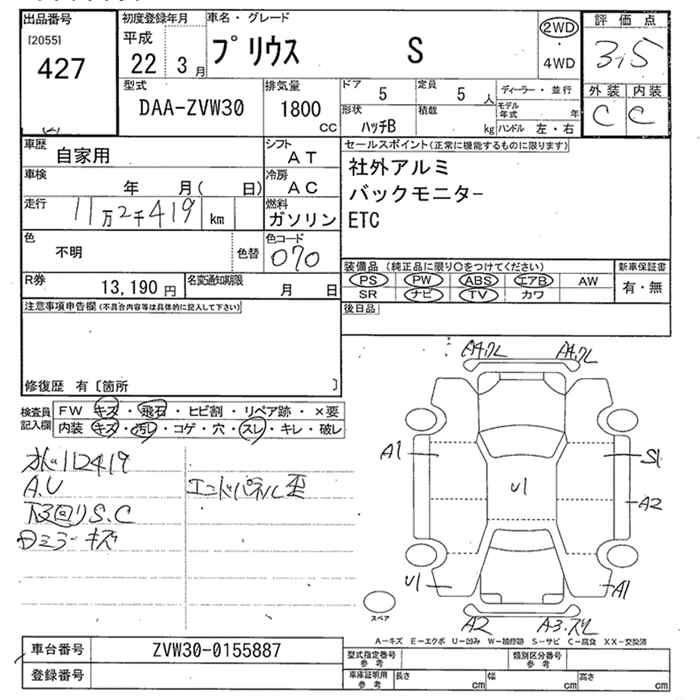 出品番号
[2055]
427
初度登録年月
平成
22 3 月
車名・グレード
プリウス S
2WD
・
4WD
評価点
3.5
外装 内装
C C
型式
DAA-ZVW30
排気量
1800
CC
ドア
5
定員
5 人
形状
ハッチB
積載
kg
ディーラー・並行
モデル年式 年
ハンドル 左・右
車歴
自家用
シフト
AT
車検
年 月( 日)
冷房
AC
走行
11万2千419 km
燃料
ガソリン
色
不明
色替
色コード
070
R券
13,190 円
名変通知期限
月 日
セールスポイント(正常に機能するものに限ります)
社外アルミ
バックモニター
ETC
装備品(純正品に限り○をつけてください)
PS PW ABS エアB AW
SR ナビ TV カワ
新車保証書
有・無
後日品
注意事項申告欄(不具合内容等は具体的に記入して下さい)
修復歴 有〔箇所 〕
検査員
記入欄
FW キズ・飛石・ヒビ割・リペア跡・×要
内装 キズ・汚レ・コゲ・穴・スレ・キレ・破レ
112419
A.U
エンドパネル歪
下回りS.C
ミラーキズ
A4.ワレ A4.ワレ
A1
S1
U1
A2
U1
A1
A2
A3.ズレ
スペア
A-キズ E-エクボ U-凹み W-補修跡 S-サビ C-腐食 XX-交換済
車台番号
ZVW30-0155887
登録番号
型式指定番号
参考
類別区分番号
参考
車庫証明用
参考
長さ cm
幅 cm
高さ cm